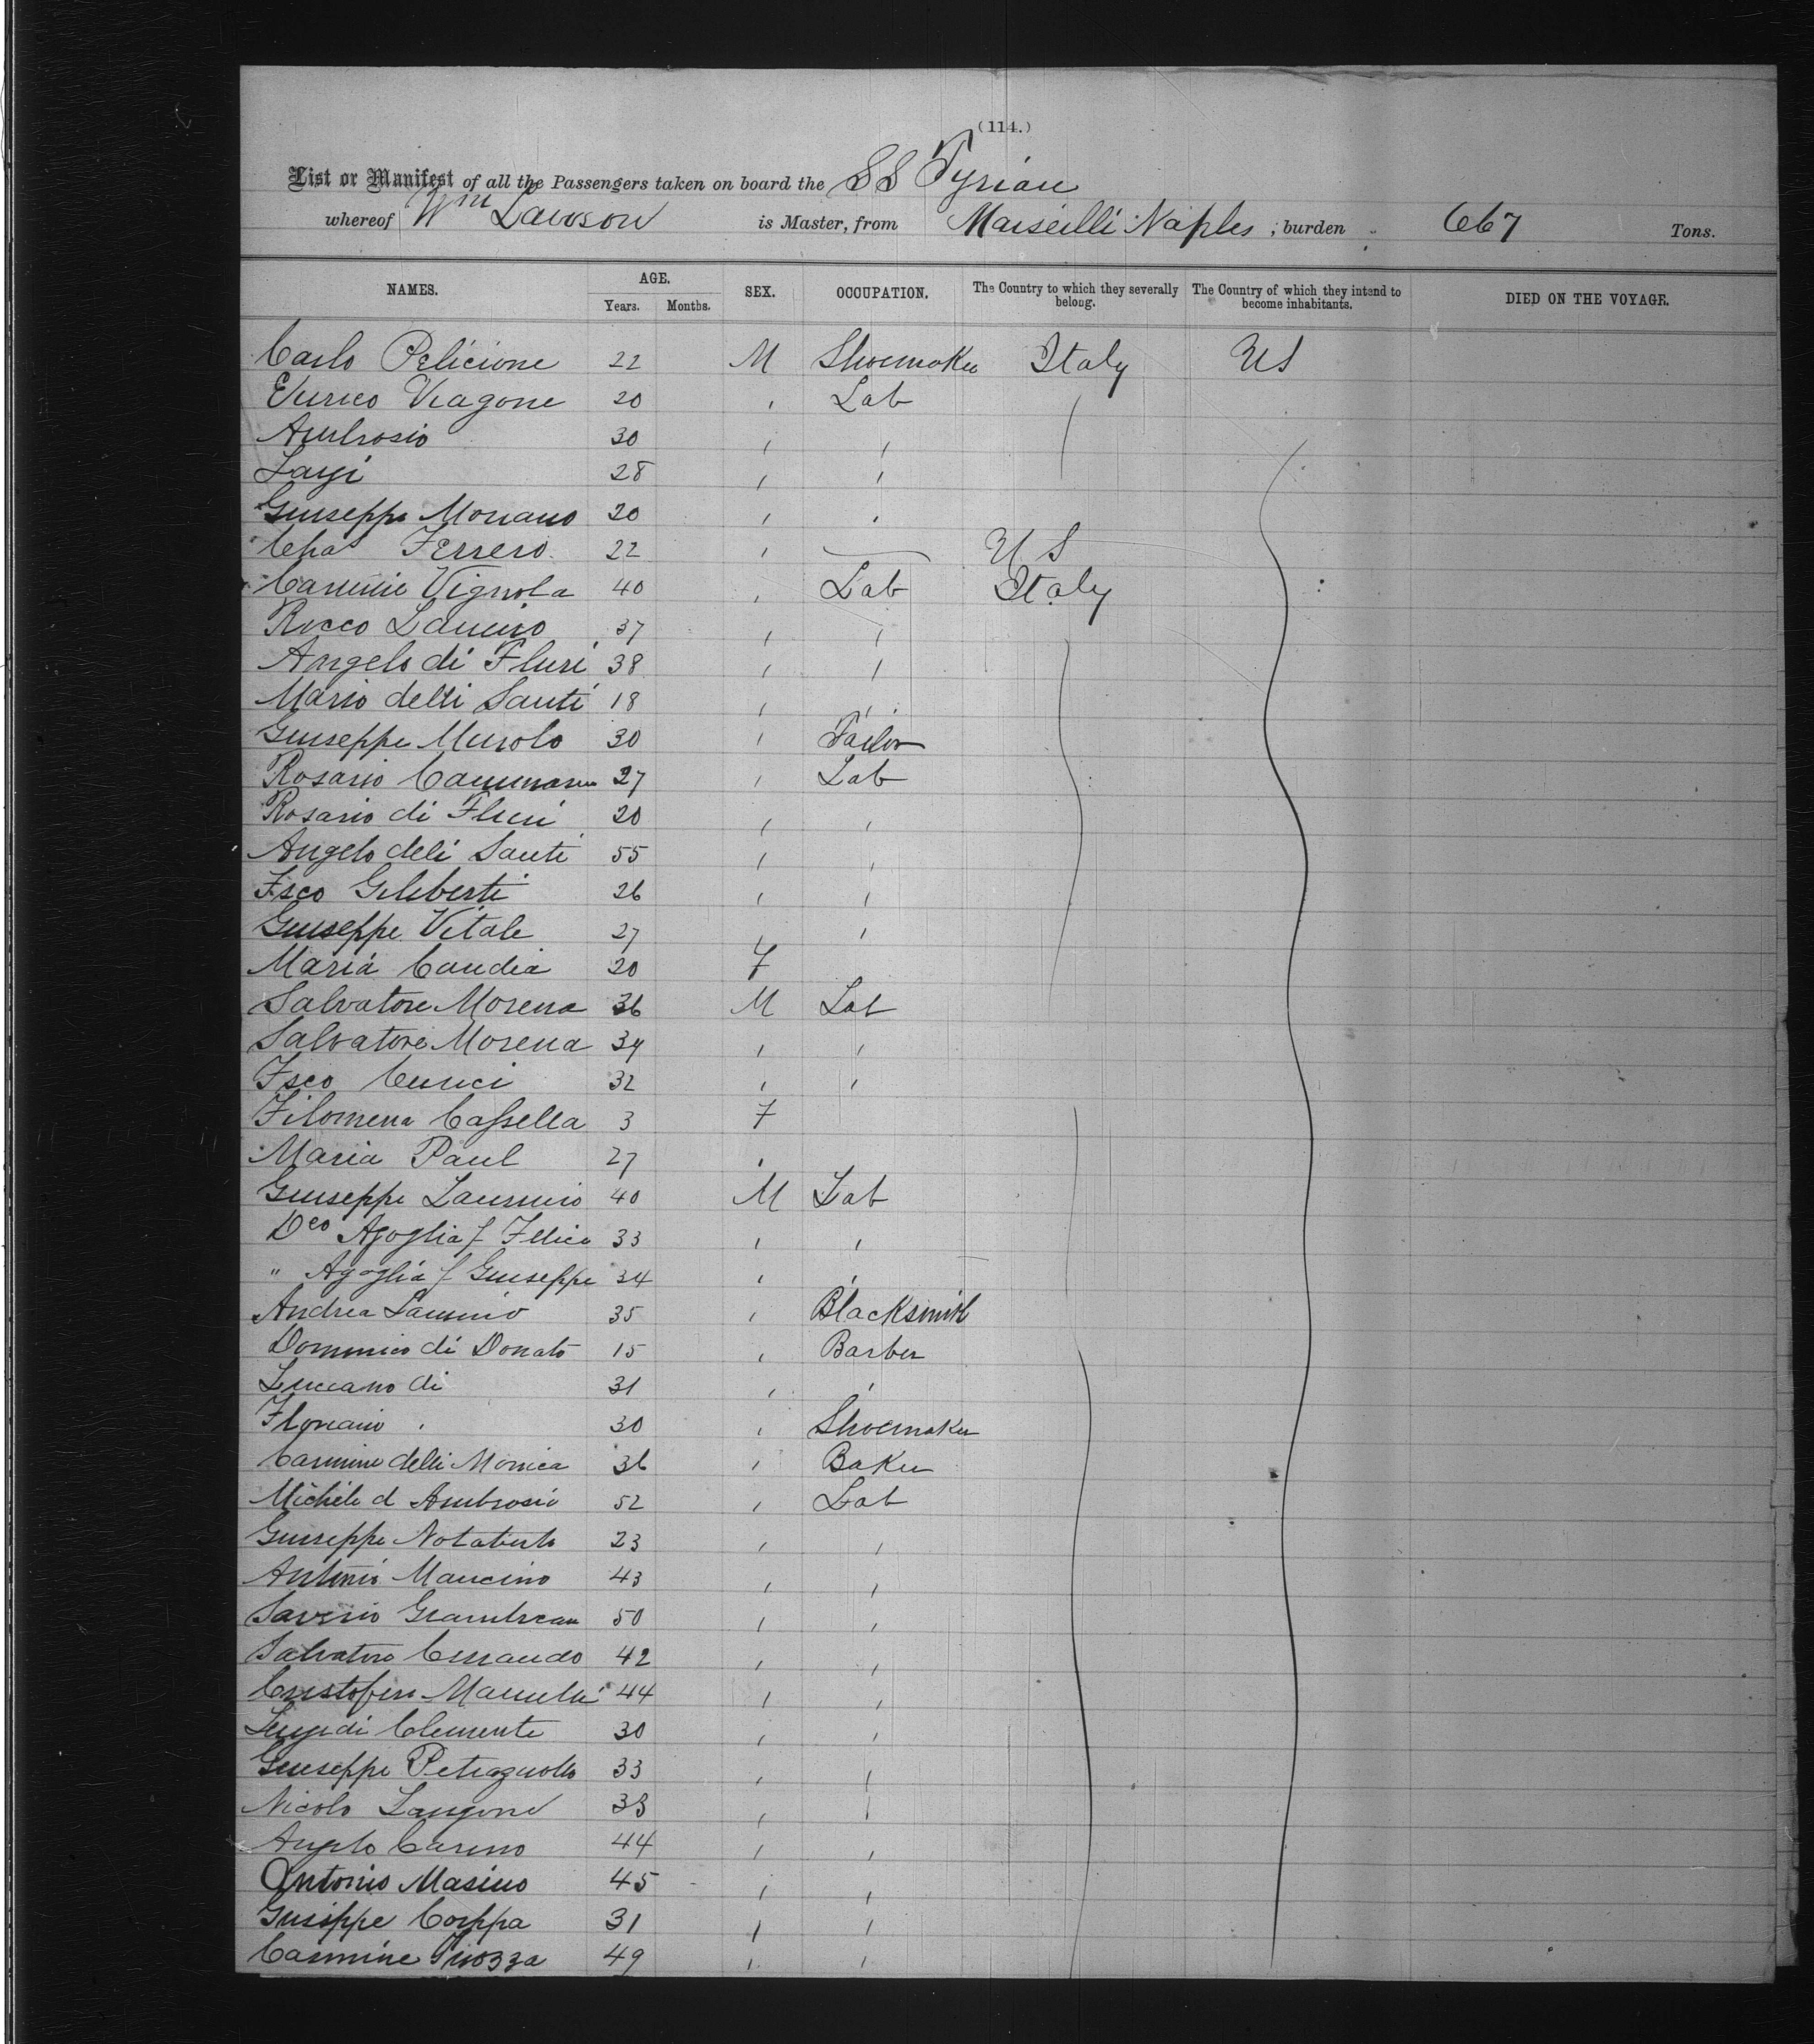 (114.)
List or Manifest of all the Passengers taken on board the SS Tyrian
whereof Wm Lawson is Master, from Marseilli Naples ; burden 667 Tons.
NAMES. AGE. Years. Months. SEX. OCCUPATION. The Country to which they severally belong. The Country of which they intend to become inhabitants. DIED ON THE VOYAGE.
Carlo Pelicione 22 M Shoemaker Italy US
Enrico Viagone 20 " Lab
Ambrosio 30 " "
Luigi 28 " "
Giuseppe Monano 20 " "
Chas Ferrero 22 " — US
Carmine Vignola 40 " Lab Italy
Rocco 37 " "
Angelo di Fluri 38 " "
Mario delli Santi 18 " "
Giuseppe Murolo 30 " Tailor
Rosario 27 " Lab
Rosario di Fluri 20 " "
Angelo deli Santi 55 " "
Fsco Giliberti 26 " "
Giuseppe Vitale 27 " "
Maria Candia 20 F
Salvatore Morena 36 M Lab
Salvatore Morena 34 " "
Fsco Curici 32 " "
Filomena Cassella 3 F
Maria Paul 27 "
Giuseppe 40 M Lab
Dco Agoglia f Felice 33 " "
" Agoglia f Giuseppe 34 " "
Andrea 35 " Blacksmith
Domenico di Donato 15 " Barber
Luciano di 31 " "
Floriano " 30 " Shoemaker
Carmine delli Monica 36 " Baker
Michele d Ambrosio 52 " Lab
Giuseppe Notaberto 23 " "
Antonio Mancino 43 " "
Saverio 50 " "
Salvatore 42 " "
Cristofero 44 " "
Luigi di Clemente 30 " "
Giuseppe 33 " "
Nicolo Langone 33 " "
Angelo Carino 44 " "
Antonio Masino 45 " "
Gusippe Coppa 31 " "
Carmine 49 " "